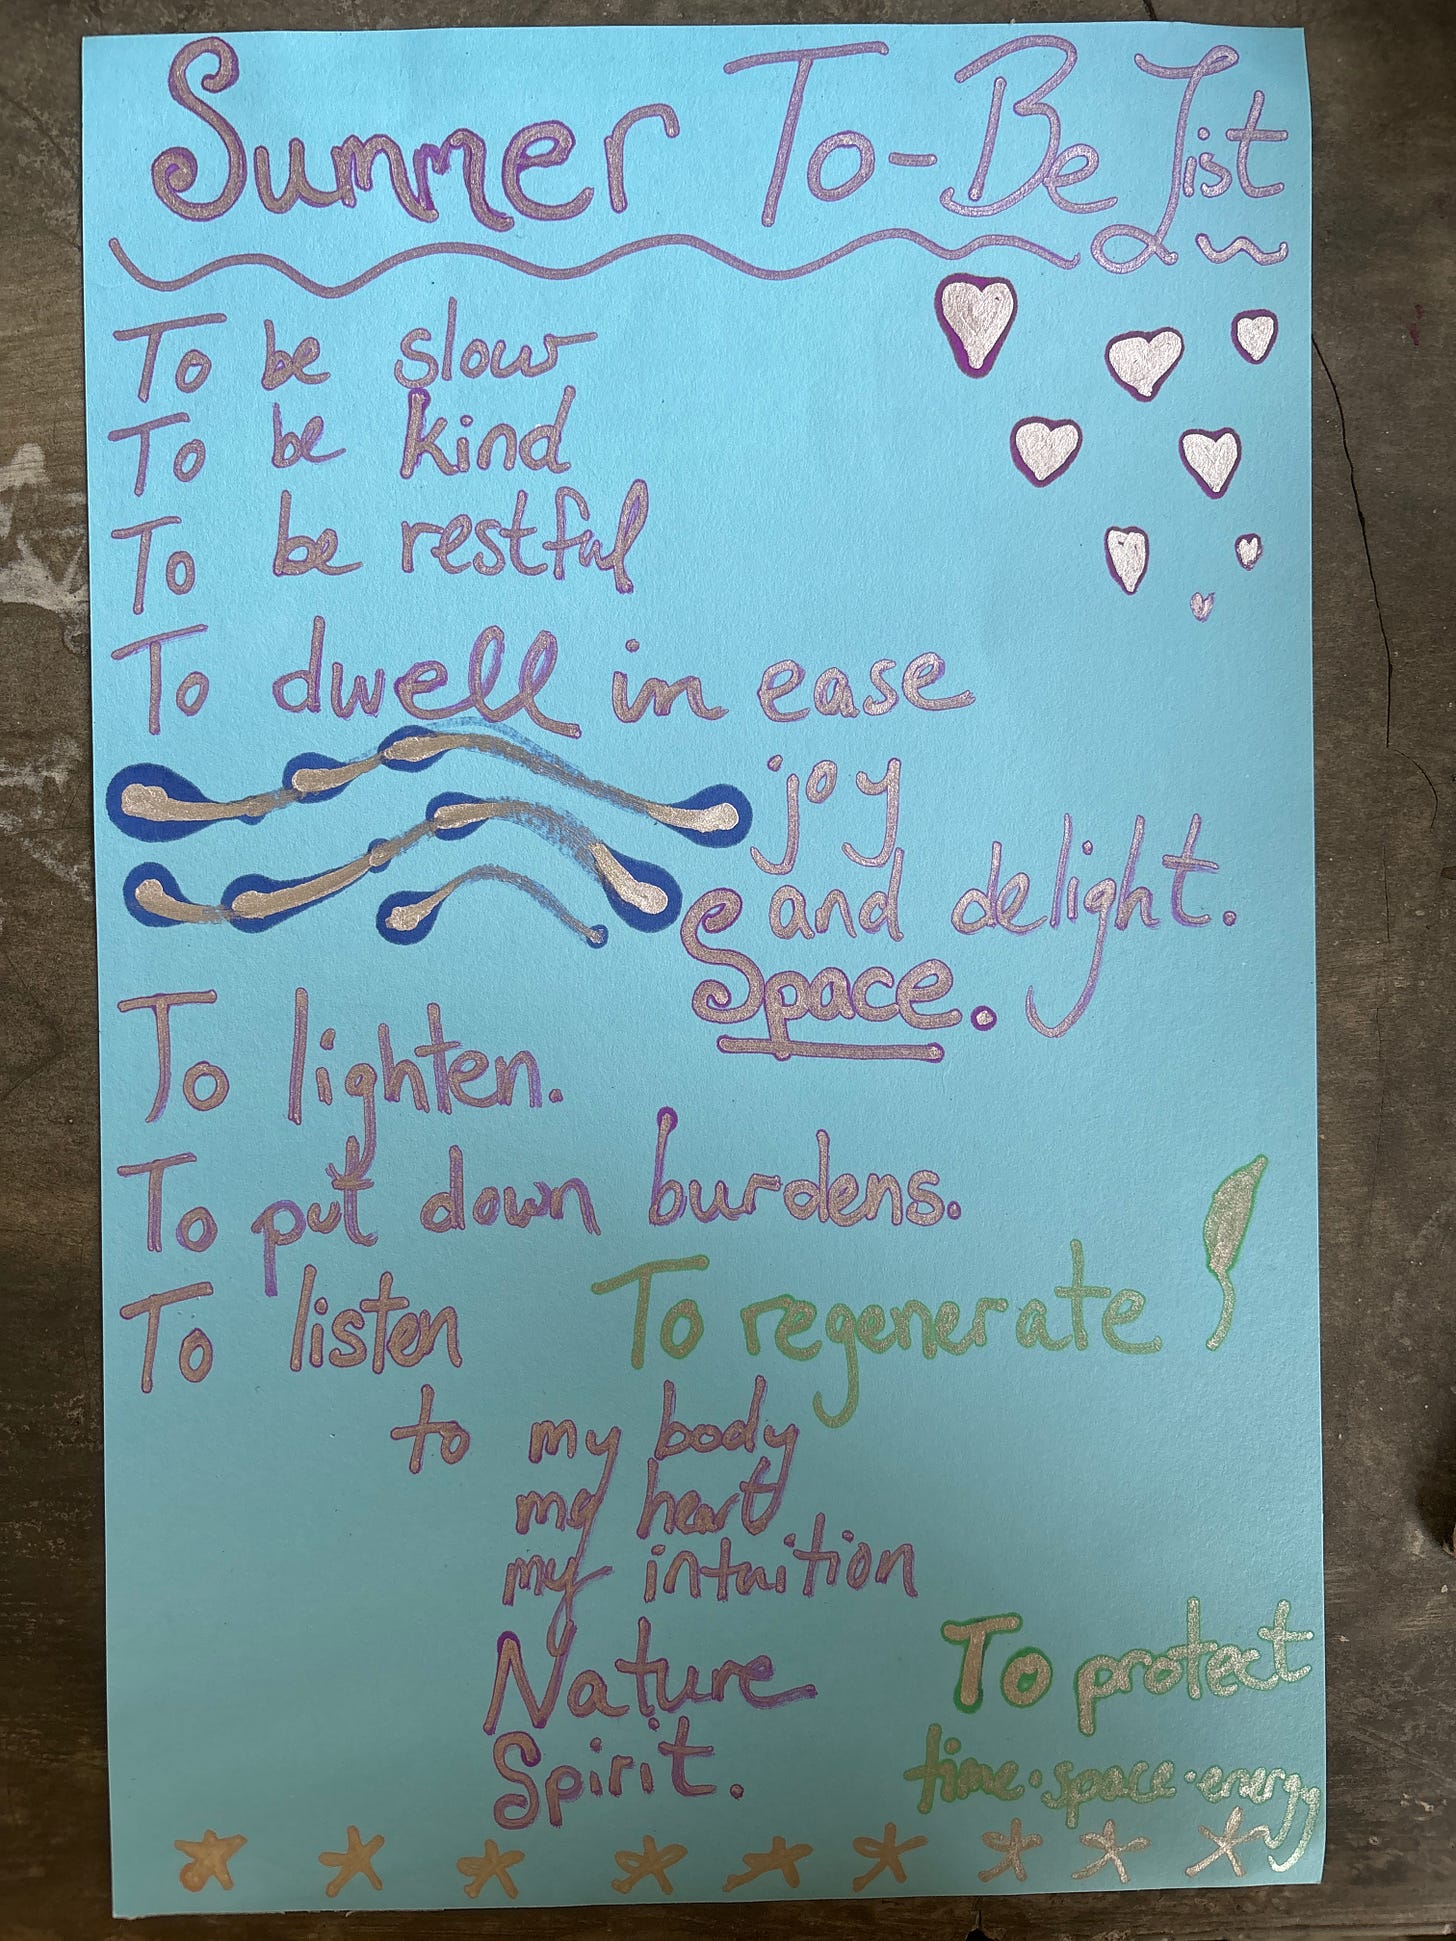 Summer To-Be List
To be slow
To be kind
To be restful
To dwell in ease
joy
and delight.
Space.
To lighten.
To put down burdens.
To listen
To regenerate
to my body
my heart
my intuition
Nature
Spirit.
To protect
time·space·energy